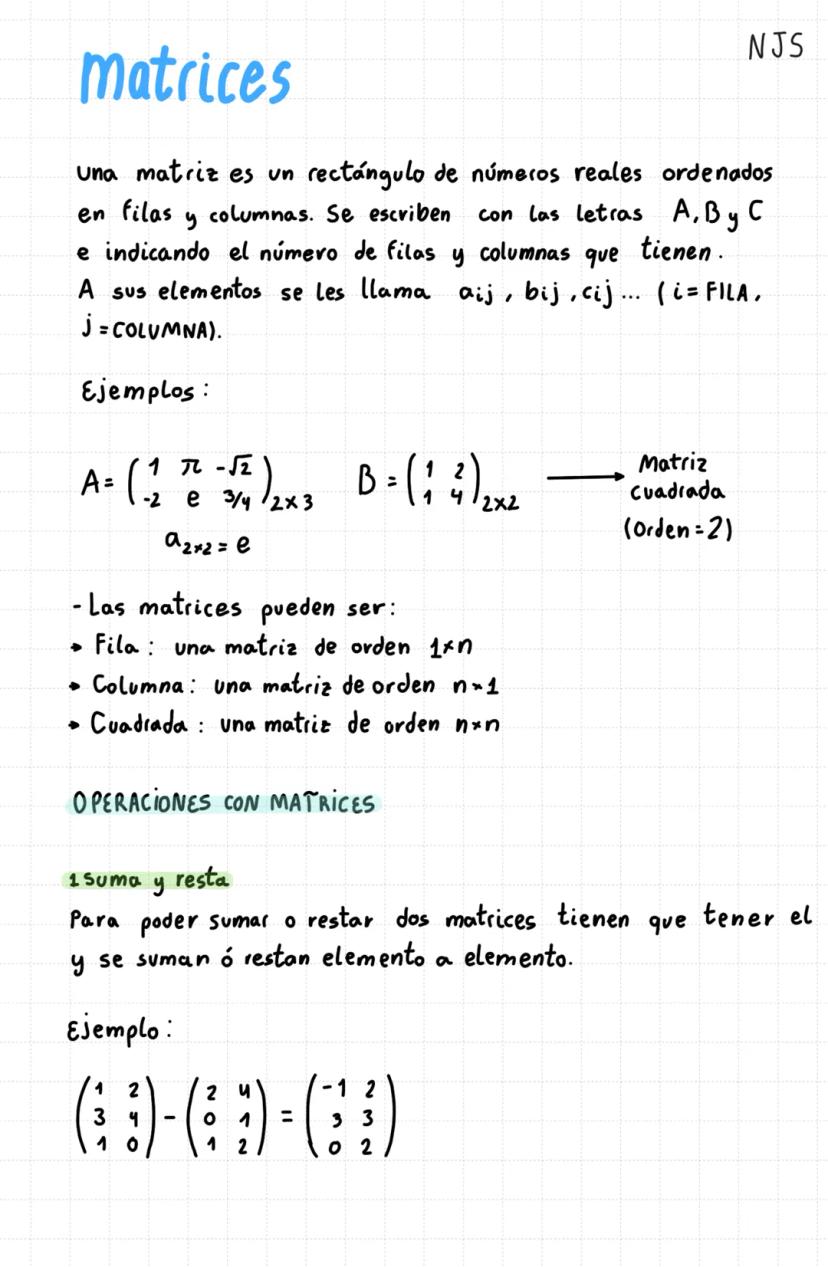 NJS
Matrices
Una matriz es un rectángulo de números reales ordenados
en filas y columnas. Se escriben con las letras A, B y C
e indicando el número de filas y columnas que tienen.
A sus elementos se les llama aij, bij, cij... (i = FILA,
j = COLUMNA).
Ejemplos:
A = ( 1 π -√2 ; -2 e 3/4 )2x3 B = ( 1 2 ; 1 4 )2x2 → Matriz
cuadrada
(Orden = 2)
a2x2 = e
- Las matrices pueden ser:
• Fila: una matriz de orden 1xn
• Columna: una matriz de orden nx1
• Cuadrada: una matriz de orden nxn
OPERACIONES CON MATRICES
1 Suma y resta
Para poder sumar o restar dos matrices tienen que tener el
y se suman ó restan elemento a elemento.
Ejemplo:
( 1 2 ; 3 4 ; 1 0 ) - ( 2 4 ; 0 1 ; 1 2 ) = ( -1 2 ; 3 3 ; 0 2 )